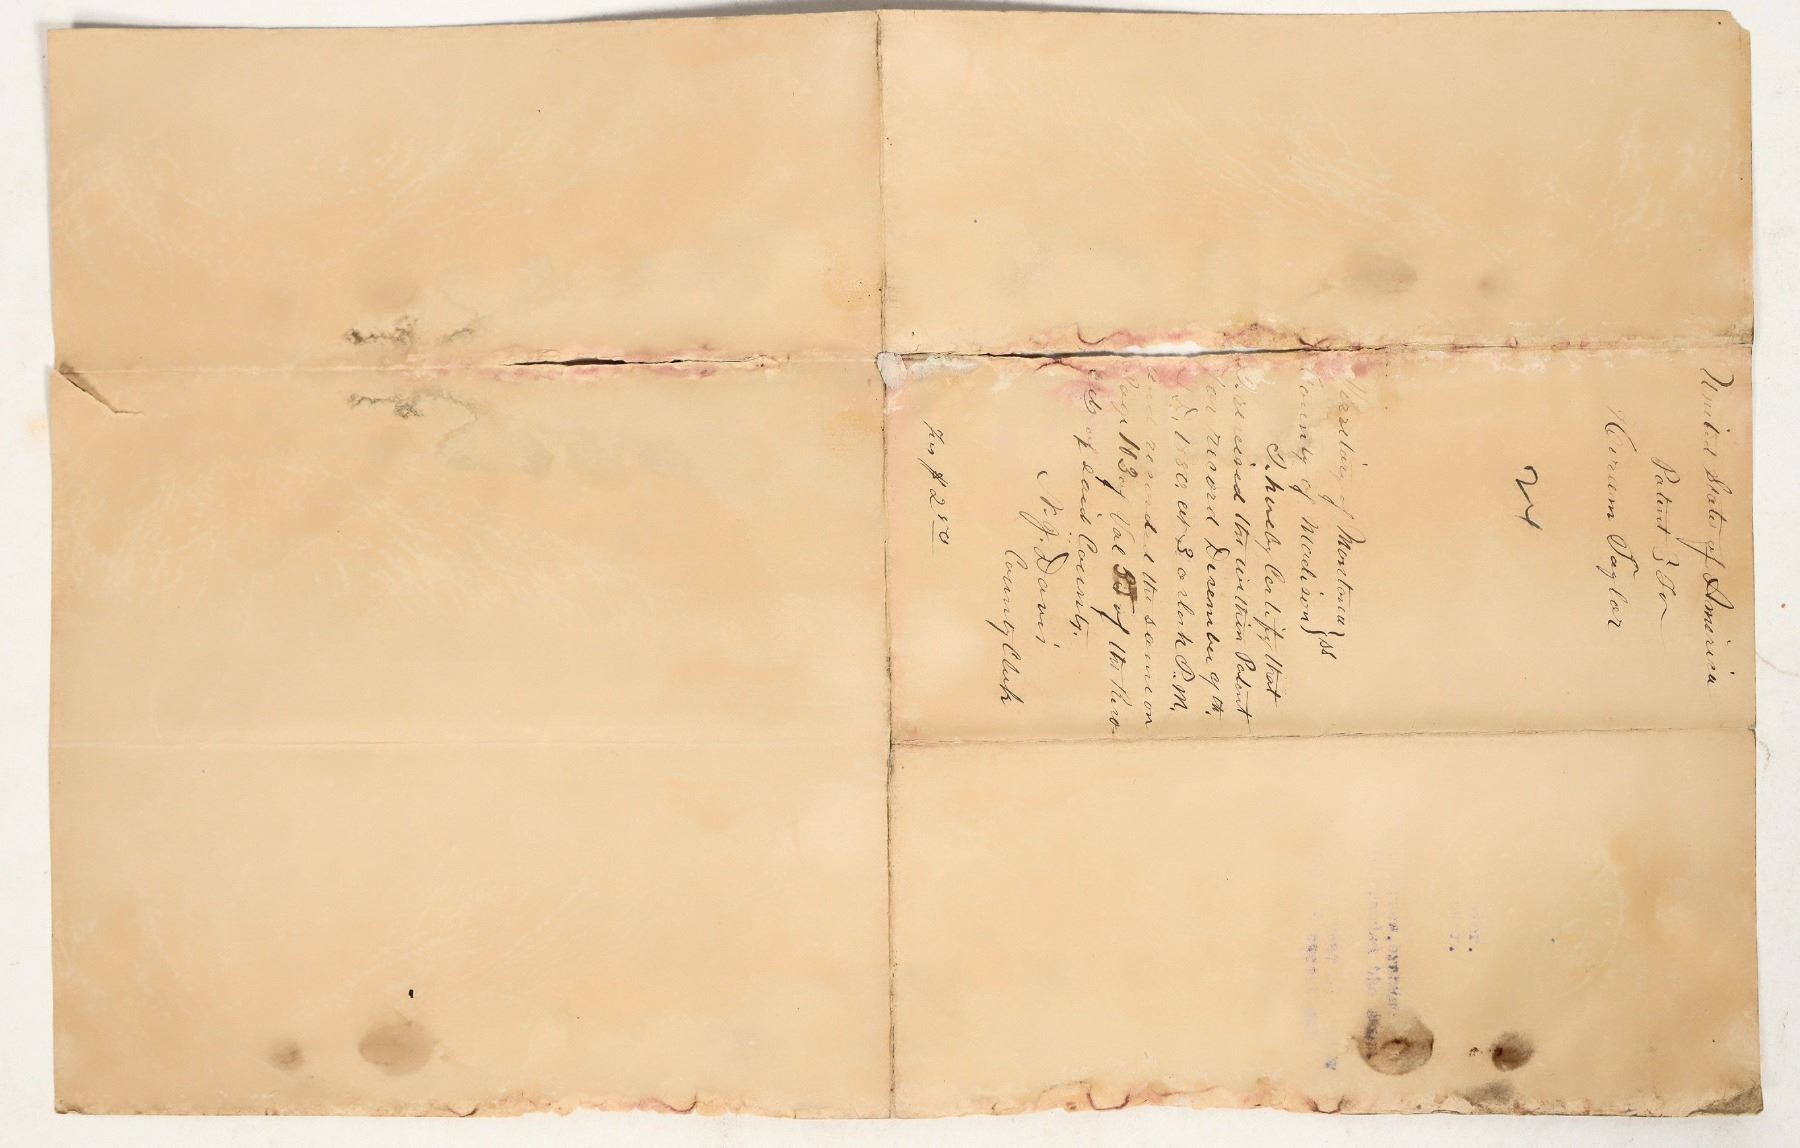 United States of America
Patent } To
Hiram Taylor
24
Territory of Montana } ss
County of Madison }
I hereby Certify that
I received the within Patent
for record December 9th.
A.D. 188 at 3 oclock P.M.
and recorded the same on
Page 113 of Vol of the Reco
rds of said County.
N. J. Davis
County Clerk
Fees $2 50